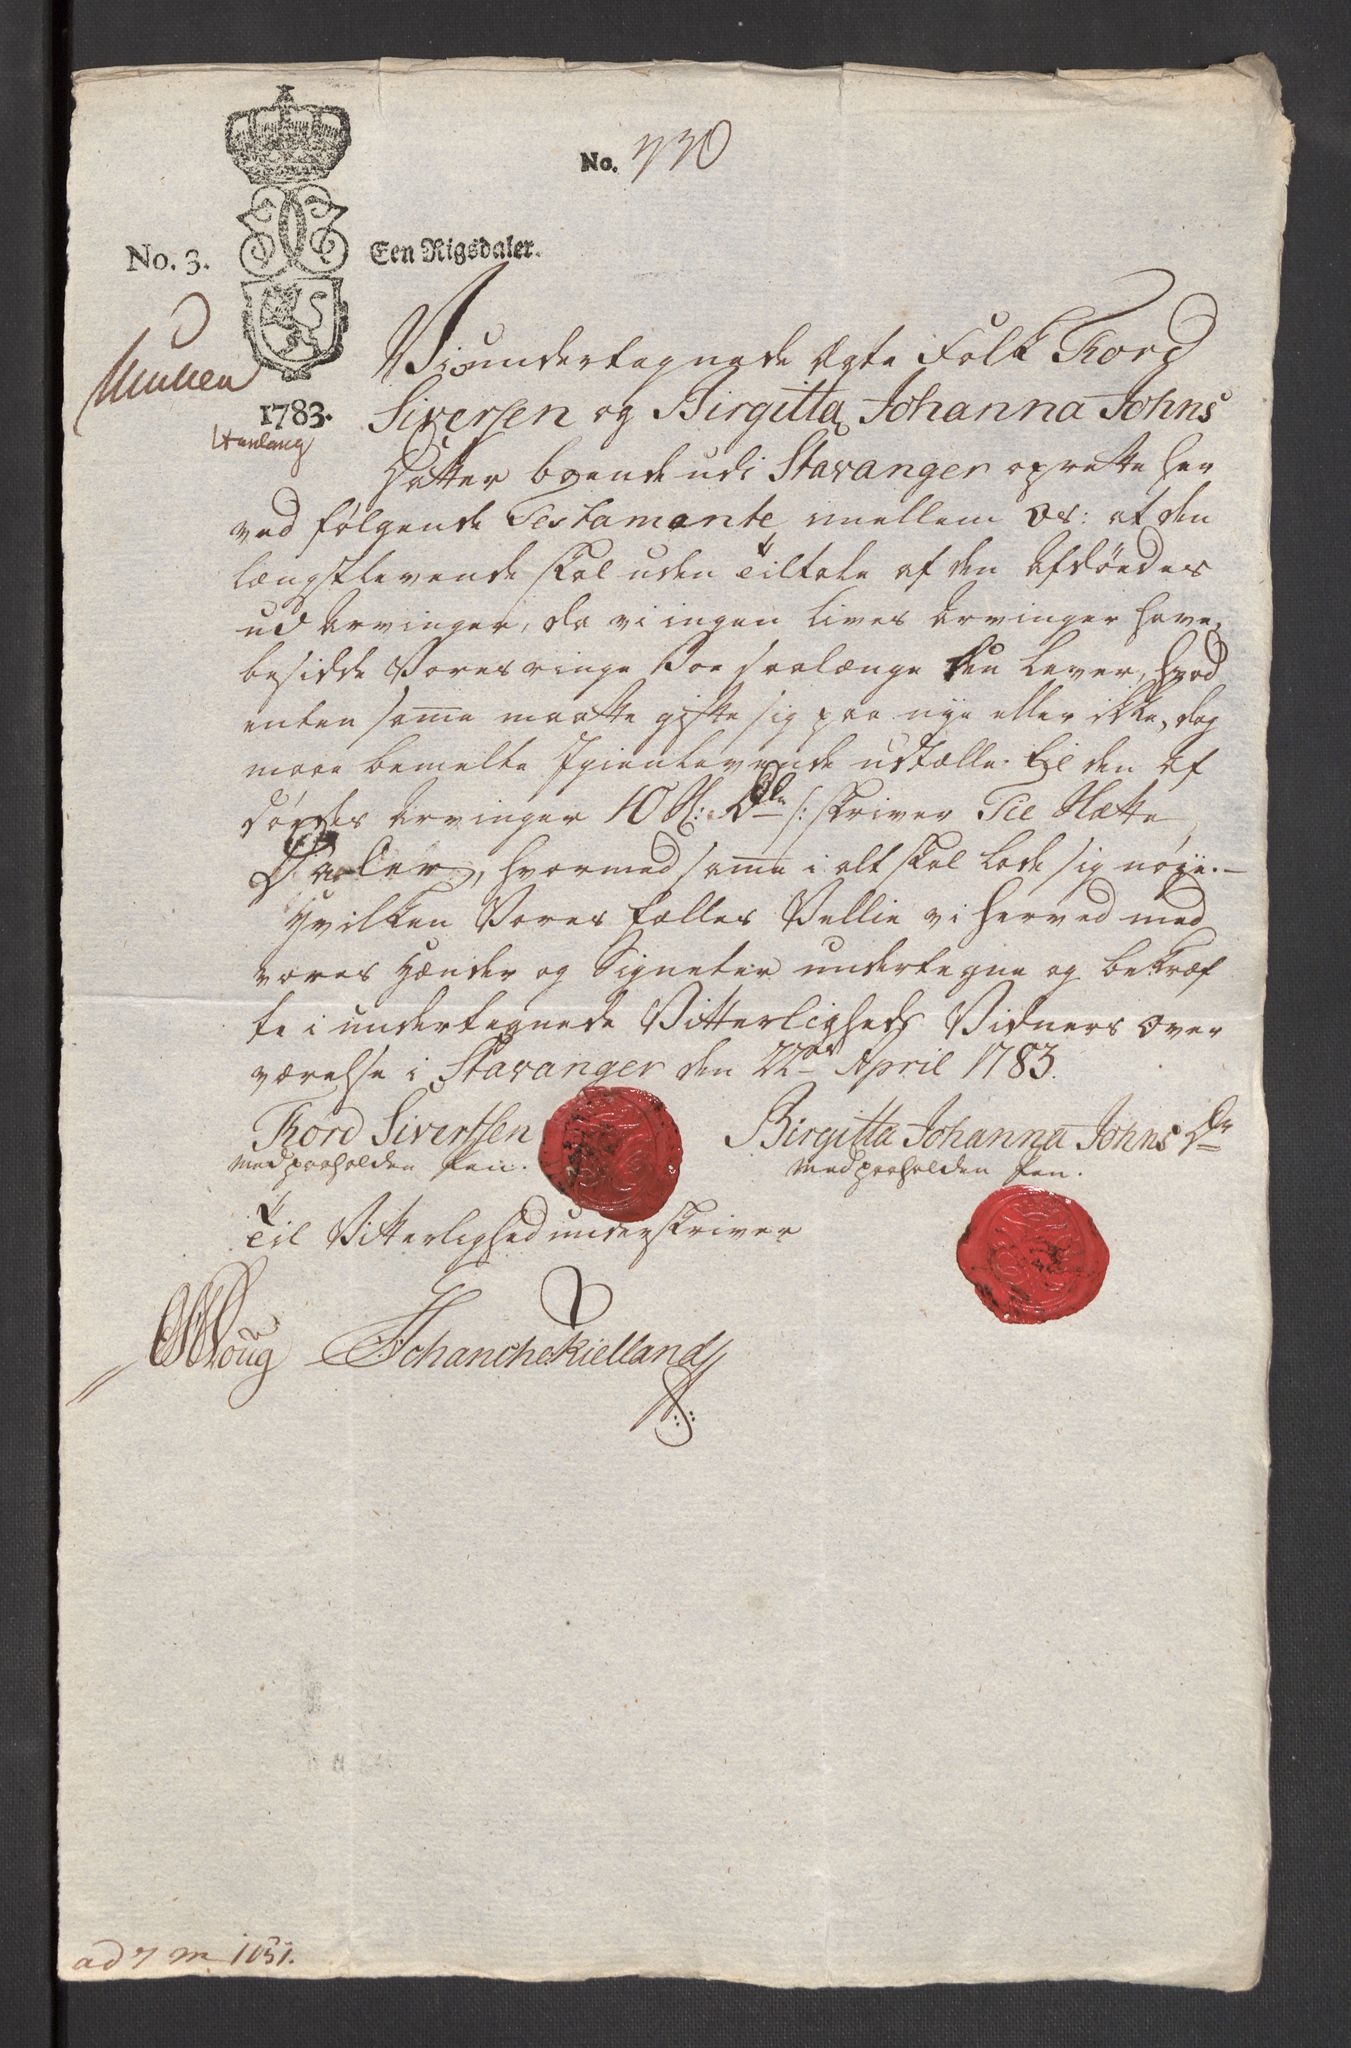 No. 330
No. 3.
Een Rigsdaler.
1783.
Vi undertegnede Ægte Folk Tord
Siversen og Birgitta Johanna Johns
Datter boende udi Stavanger oprette her
ved følgende Testamente imellem os: at den
længstlevende skal uden Tiltale af den Afdøedes
ud Arvinger, da vi ingen Livs Arvinger have,
besidde Vores ringe Boe saalænge den lever, hvad
enten same maatte gifte sig paa nye eller ikke, dog
maae bemelte Igienlevende udtælle til den af
dødes Arvinger 10 Sl: Dlr /: skriver Tie Slætte
Daler, hvormed same i alt skal lade sig nøye.-
Hvilken Vores fælles Villie vi herved med
vores Hænder og Signeter undertegne og bekræf
te i undertegnede Vitterligheds Vidners over
værelse i Stavanger den 22de April 1783.
Tord Sivertsen
Birgitta Johanna Johns Dr
med paaholden Pen.
med paaholden Pen.
Til Vitterlighed underskriver
Schanche Kielland
ad 7 m 1051.